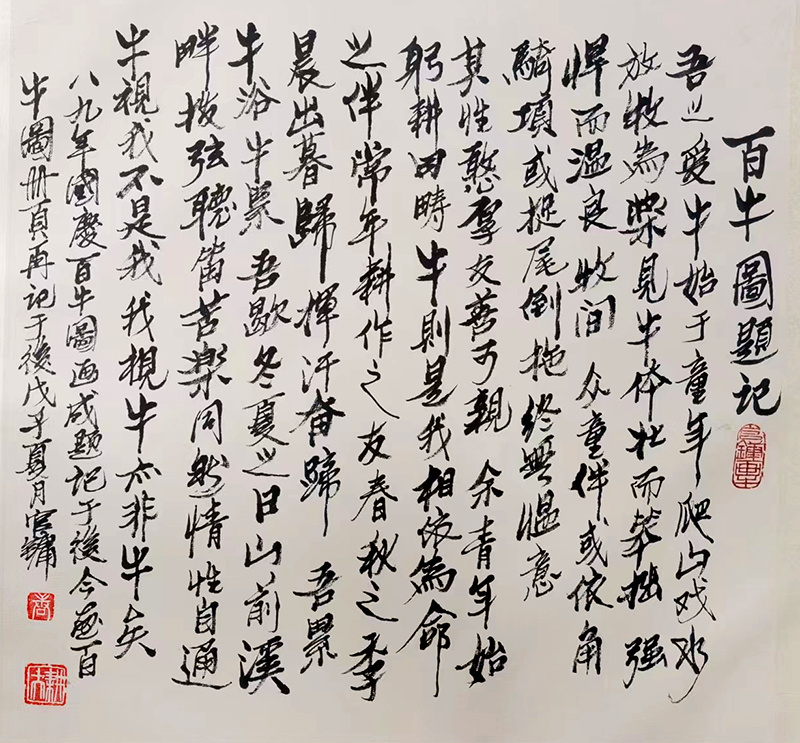 百牛圖題记
吾之爱牛始于童年爬山戏水
放牧為樂見牛体壮而拙强
悍而温良牧间众童伴或依角
騎項或捉尾倒拖终無愠意
其性憨厚友善可親余青年始
躬耕田畴牛則是我相依為命
之伴常年耕作之友春秋之季
晨出暮歸揮汗奋蹄吾累
牛浴牛累吾歇冬夏之日山前溪
畔拨弦聽笛苦樂同然情性自通
牛視我不是我我視牛亦非牛矣
八九年國慶百牛圖画成题记于後今画百
牛圖册頁再记于後戊子夏月官